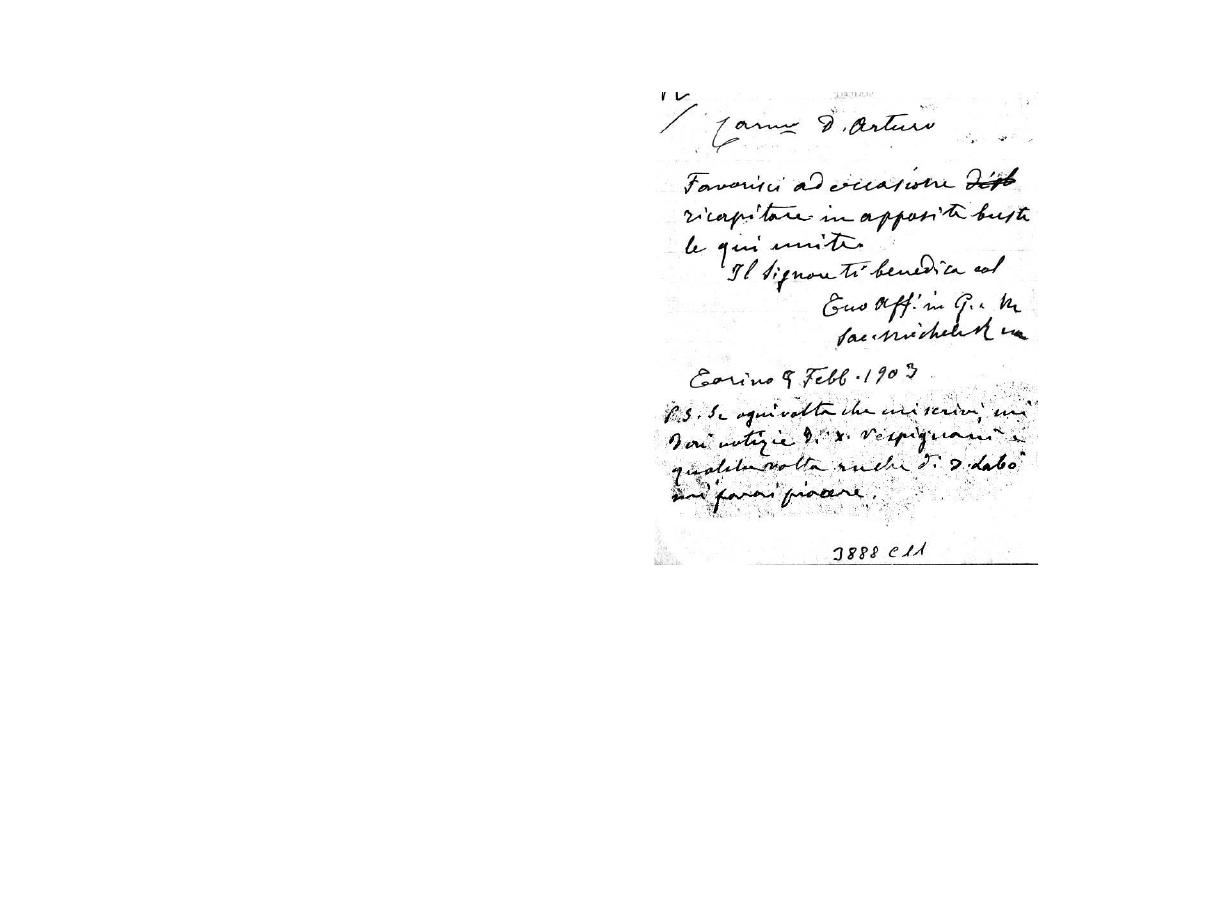 Car.mo D. Arturo
Favorisci ad occasione
ricapitare in apposite buste
le qui unite.
Il Signore ti benedica col
Tuo Aff. in G. e M
Sac. Michele R
Torino 9 Febb. 1903
P.S. Se ogni volta che mi scrivi, mi
darai notizie di Vespignani e
qualche volta anche di D. Labó
mi farai piacere.
3888 C 11